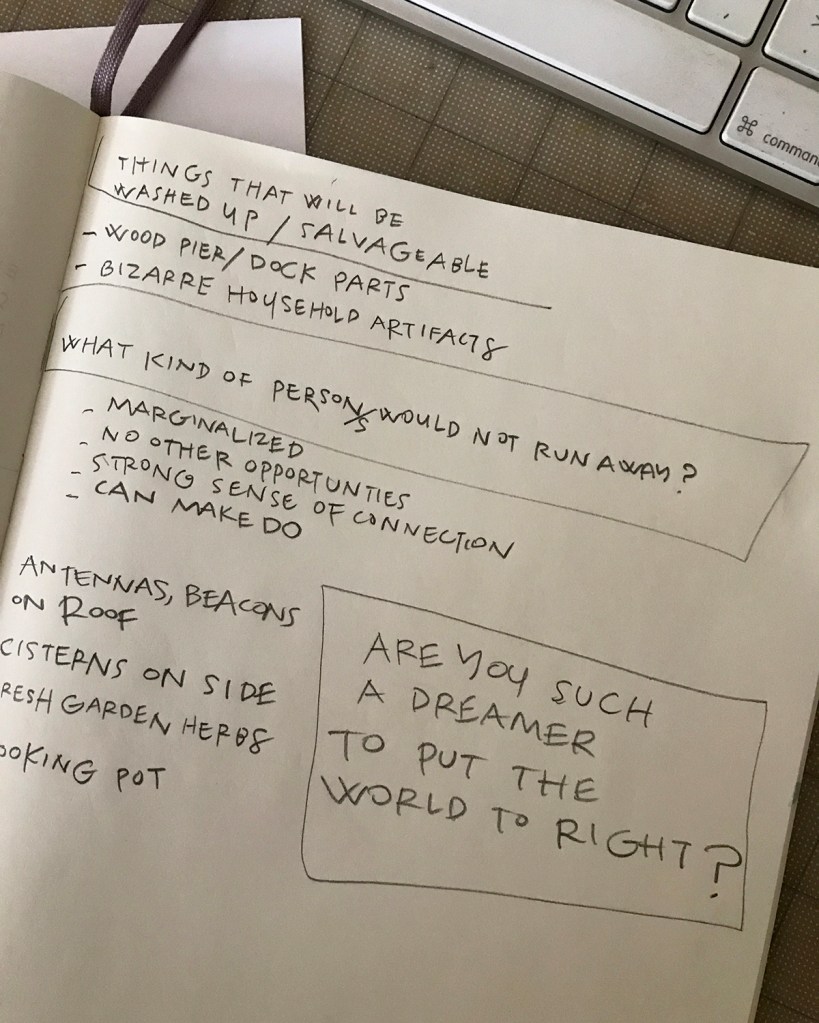 THINGS THAT WILL BE
WASHED UP / SALVAGEABLE
- WOOD PIER/DOCK PARTS
- BIZARRE HOUSEHOLD ARTIFACTS
WHAT KIND OF PERSON/S WOULD NOT RUN AWAY?
- MARGINALIZED
- NO OTHER OPPORTUNTIES
- STRONG SENSE OF CONNECTION
- CAN MAKE DO
ANTENNAS, BEACONS
ON ROOF
CISTERNS ON SIDE
RESH GARDEN HERBS
OOKING POT
ARE YOU SUCH
A DREAMER
TO PUT THE
WORLD TO RIGHT?
⌘ comman